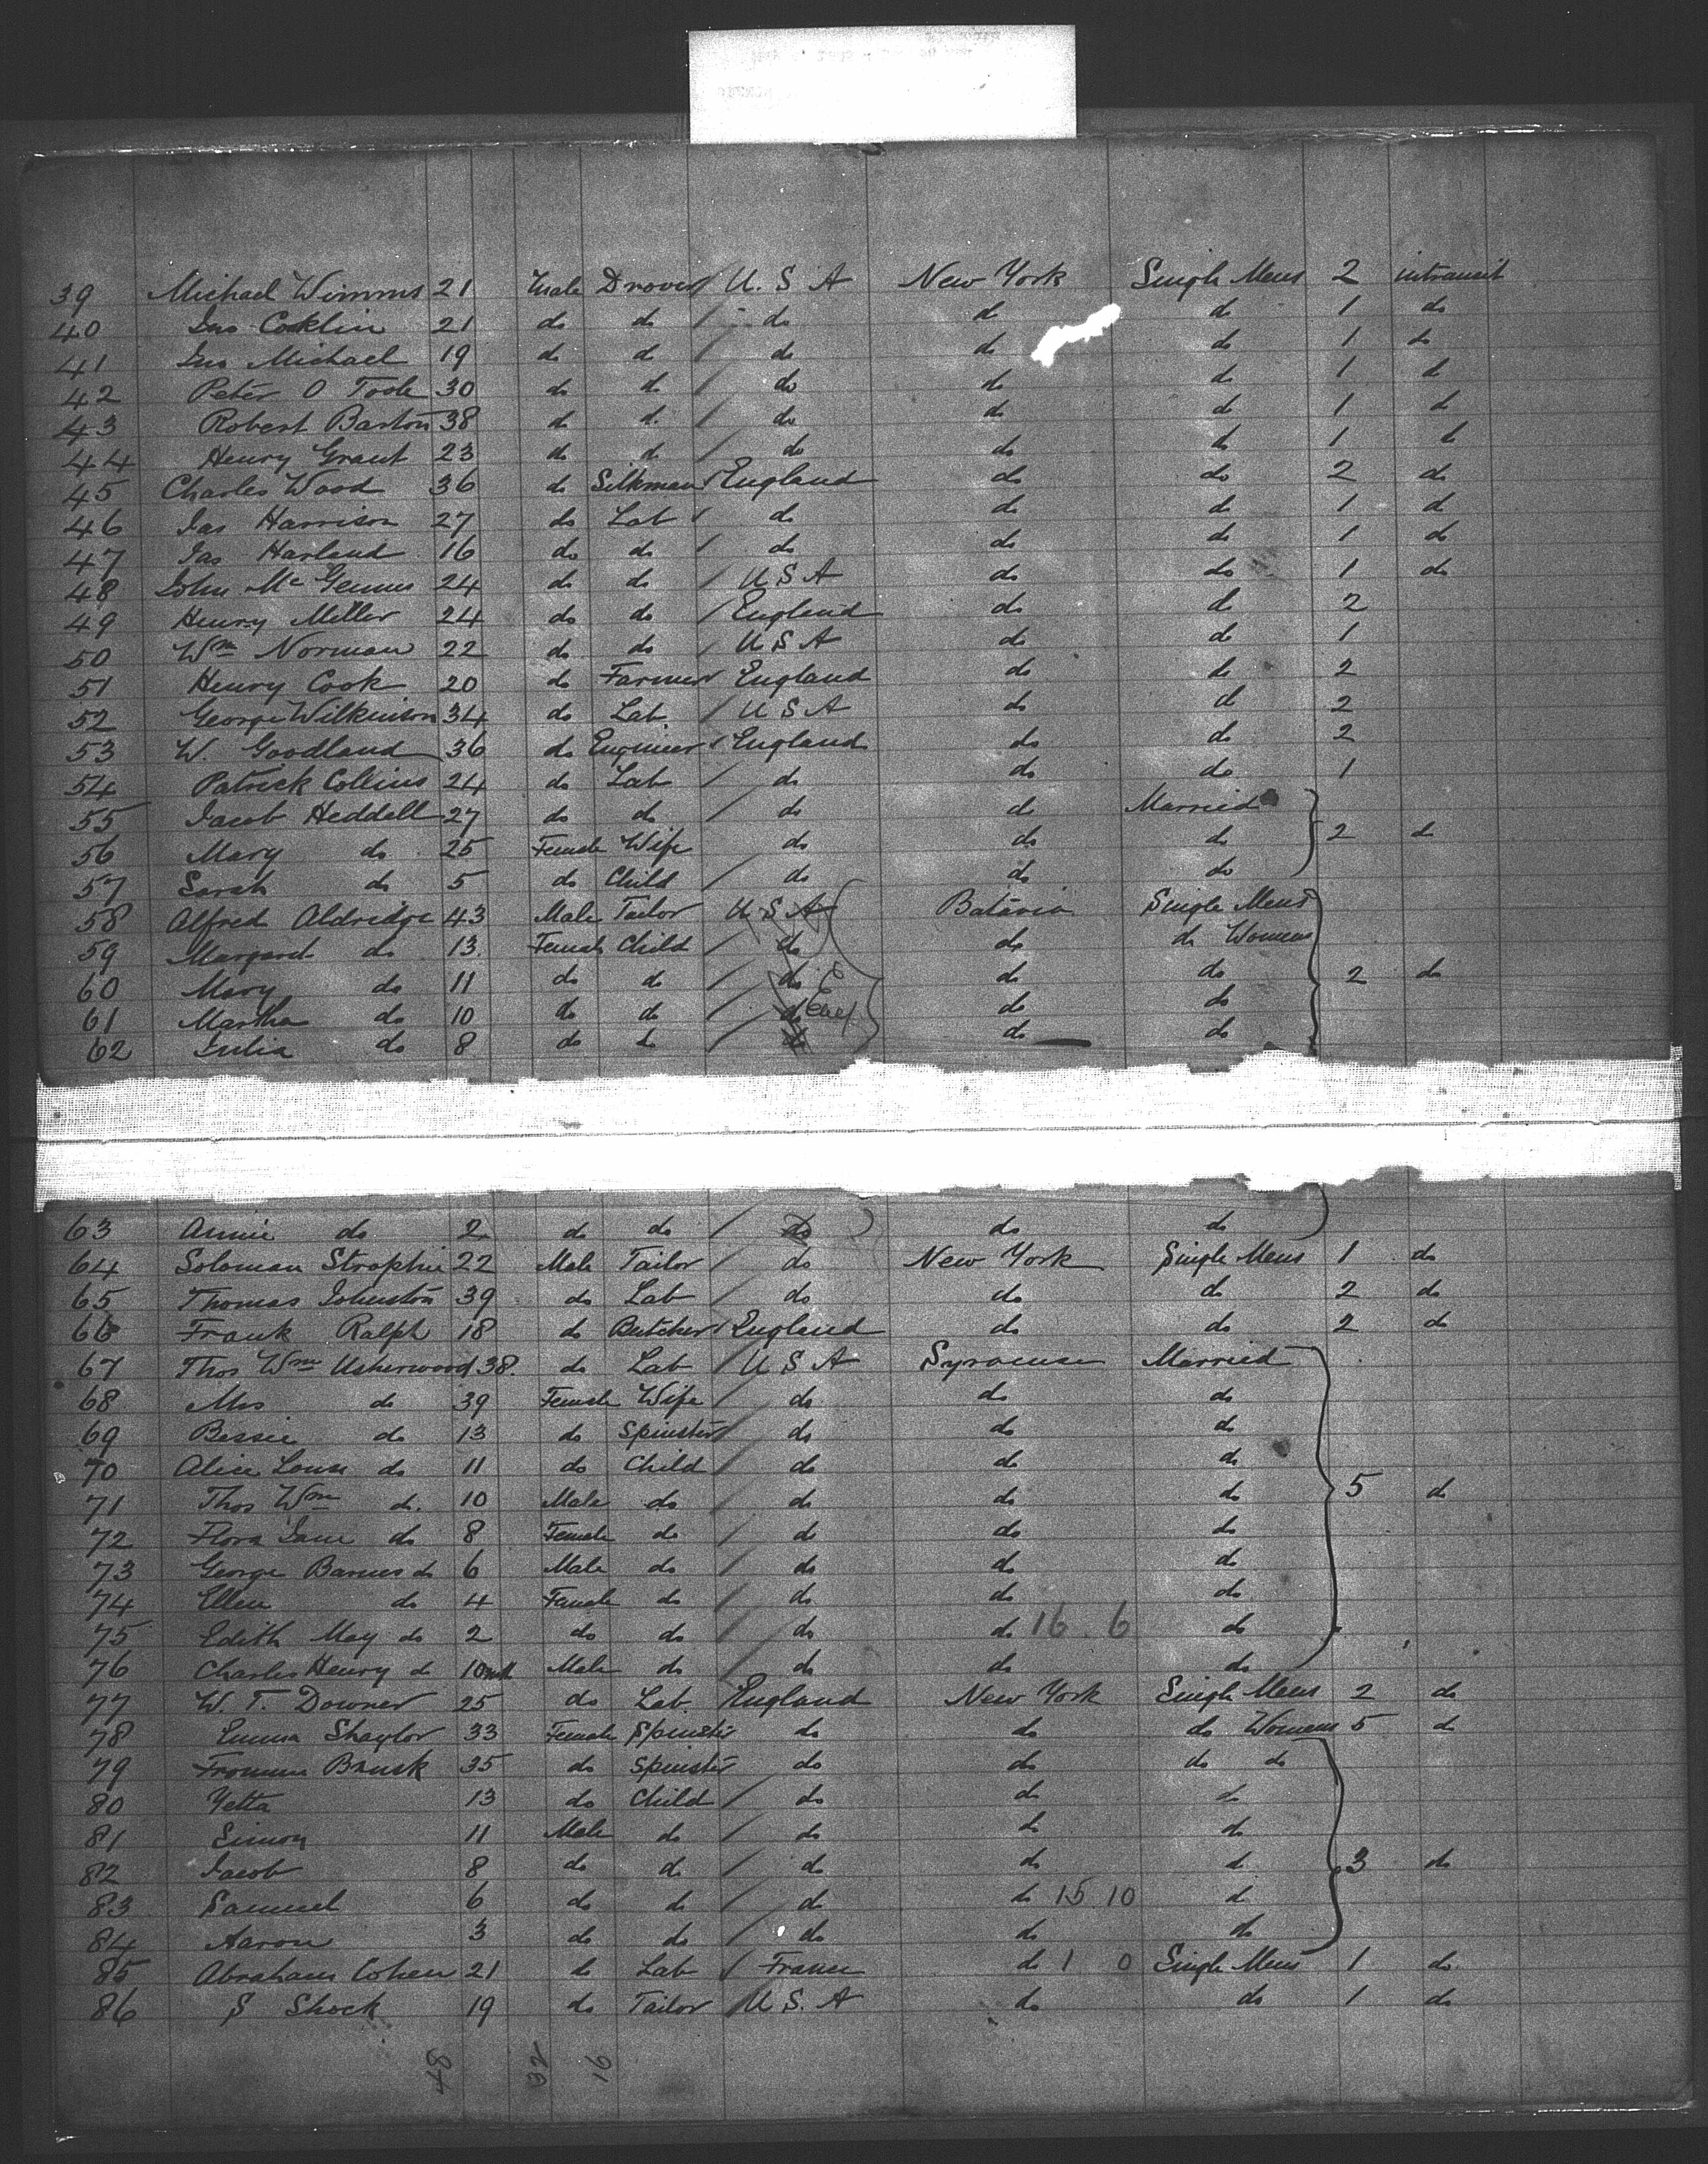 39 Michael Wimms 21 Male Drover / U. S. A New York Single Mens 2 intransit
40 Jno Cocklin 21 do do / do do do 1 do
41 Jno Michael 19 do do / do do do 1 do
42 Peter O Toole 30 do do / do do do 1 do
43 Robert Barton 38 do do / do do do 1 do
44 Henry Grant 23 do do / do do do 1 do
45 Charles Wood 36 do Silkman / England do do 2 do
46 Jas Harrison 27 do Lab / do do do 1 do
47 Jas Harland 16 do do / do do do 1 do
48 John Mc 24 do do / U S A do do 1 do
49 Henry Miller 24 do do / England do do 2
50 Wm Norman 22 do do / U S A do do 1
51 Henry Cook 20 do Farmer / England do do 2
52 George Wilkinson 34 do Lab. / U S A do do 2
53 W. Goodland 36 do Engineer / England do do 2
54 Patrick Collins 24 do Lab / do do do 1
55 Jacob Heddell 27 do do / do do Married
56 Mary do 25 Female Wife do do do 2 do
57 Sarah do 5 do Child / do do do
58 Alfred Aldridge 43 Male Tailor U S A Batavia Single Mens
59 Margaret do 13. Female Child / do do do Womens
60 Mary do 11 do do / do E do do 2 do
61 Martha do 10 do do / do do do
62 Julia do 8 do do / do do do
63 Annie do 2 do do / do do do
64 Soloman 22 Male Tailor / do New York Single Mens 1 do
65 Thomas Johnston 39 do Lab / do do do 2 do
66 Frank Ralph 18 do Butcher / England do do 2 do
67 Thos Wm Usherwood 38. do Lab / U S A Syracuse Married
68 Mrs do 39 Female Wife / do do do
69 Bessie do 13 do Spinster / do do do
70 Alice Louse do 11 do Child / do do do
71 Thos Wm do. 10 Male do / do do do 5 do
72 Flora Jane do 8 Female do / do do do
73 George Barnes do 6 Male do / do do do
74 Ellen do 4 Female do / do do do
75 Edith May do 2 do do / do do 16. 6 do
76 Charles Henry do 10 mth Male do / do do do
77 W. T. Downer 25 do Lab England New York Single Mens 2 do
78 Emma Shaylor 33 Female Spinster do do do Womens 5 do
79 Brusk 35 do Spinster do do do do
80 Yetta 13 do Child / do do do
81 Simon 11 Male do / do do do
82 Jacob 8 do do / do do do 3 do
83 Samuel 6 do do / do do 15. 10 do
84 Aaron 3 do do / do do do
85 Abraham Cohen 21 do Lab / France do 1 0 Single Mens 1 do
86 S Shock 19 do Tailor / U. S. A do do 1 do
48 32 16